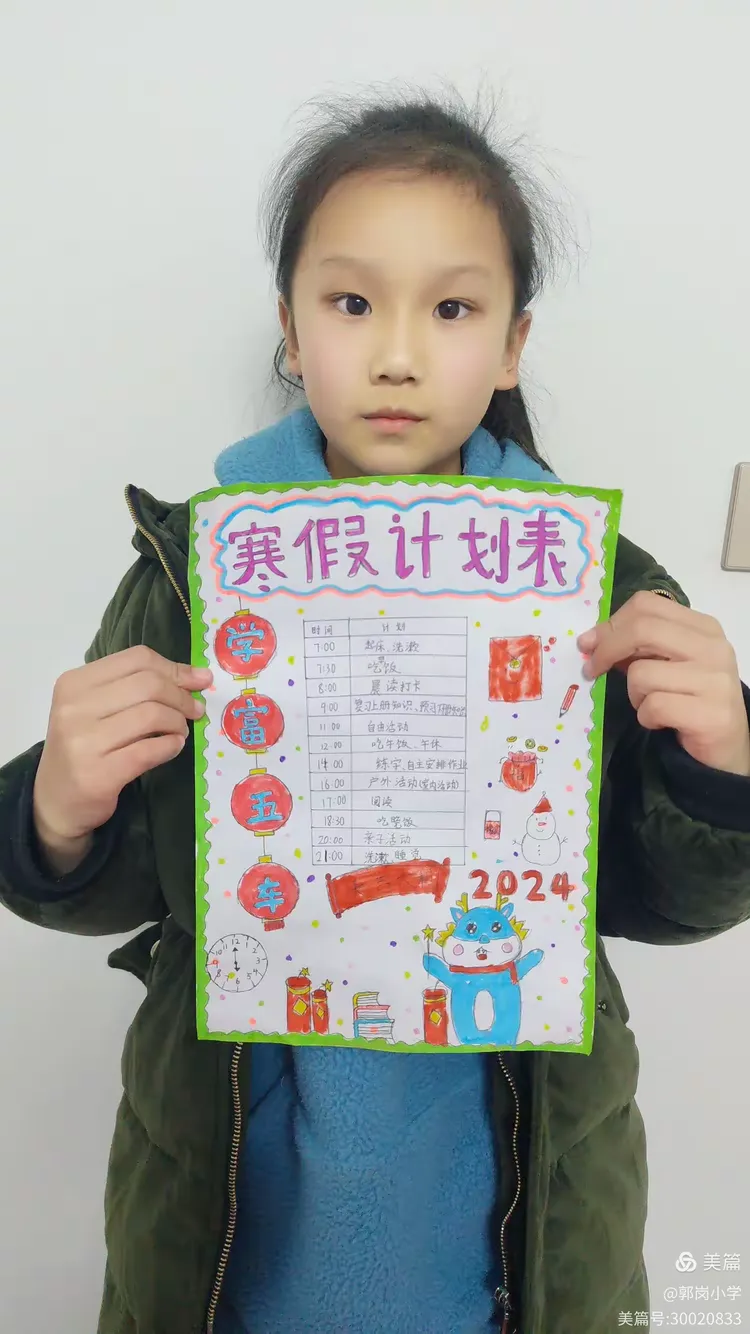 寒假计划表
学富五车
时间 计划
7:00 起床、洗漱
7:30 吃早饭
8:00 晨读打卡
9:00 复习上册知识、预习下册
11:00 自由活动
12:00 吃午饭、午休
14:00 练字,自主安排作业
16:00 户外活动(室内活动)
17:00 阅读
18:30 吃晚饭
20:00 亲子活动
21:00 洗漱、睡觉
2024
12
1
2
3
4
5
6
7
8
9
10
11
美篇
@郭岗小学
美篇号:30020833